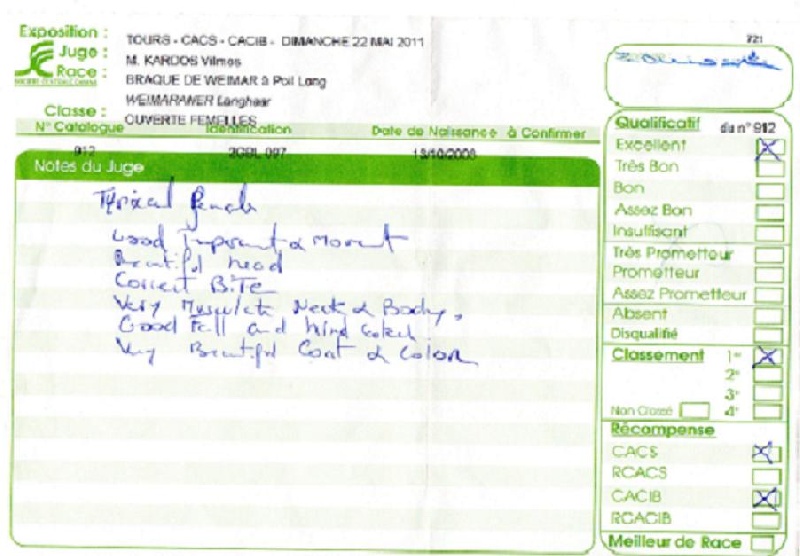 Exposition : TOURS - CACS - CACIB - DIMANCHE 22 MAI 2011
Juge : M. KARDOS Vilmos
Race : BRAQUE DE WEIMAR à Poil Long
WEIMARANER Langhaar
Classe : OUVERTE FEMELLES
N° Catalogue Identification Date de Naissance à Confirmer
912 2GBL 097 13/10/2008
Notes du Juge
Typical Female
Good
Beautiful head
Correct BiTe
Very Neck & Body,
Good and
Very Beautiful Coat & Color
721
Qualificatif du n° 912
Excellent
Très Bon
Bon
Assez Bon
Insuffisant
Très Prometteur
Prometteur
Assez Prometteur
Absent
Disqualifié
Classement 1er
2e
3e
Non Classé 4e
Récompense
CACS
RCACS
CACIB
RCACIB
Meilleur de Race